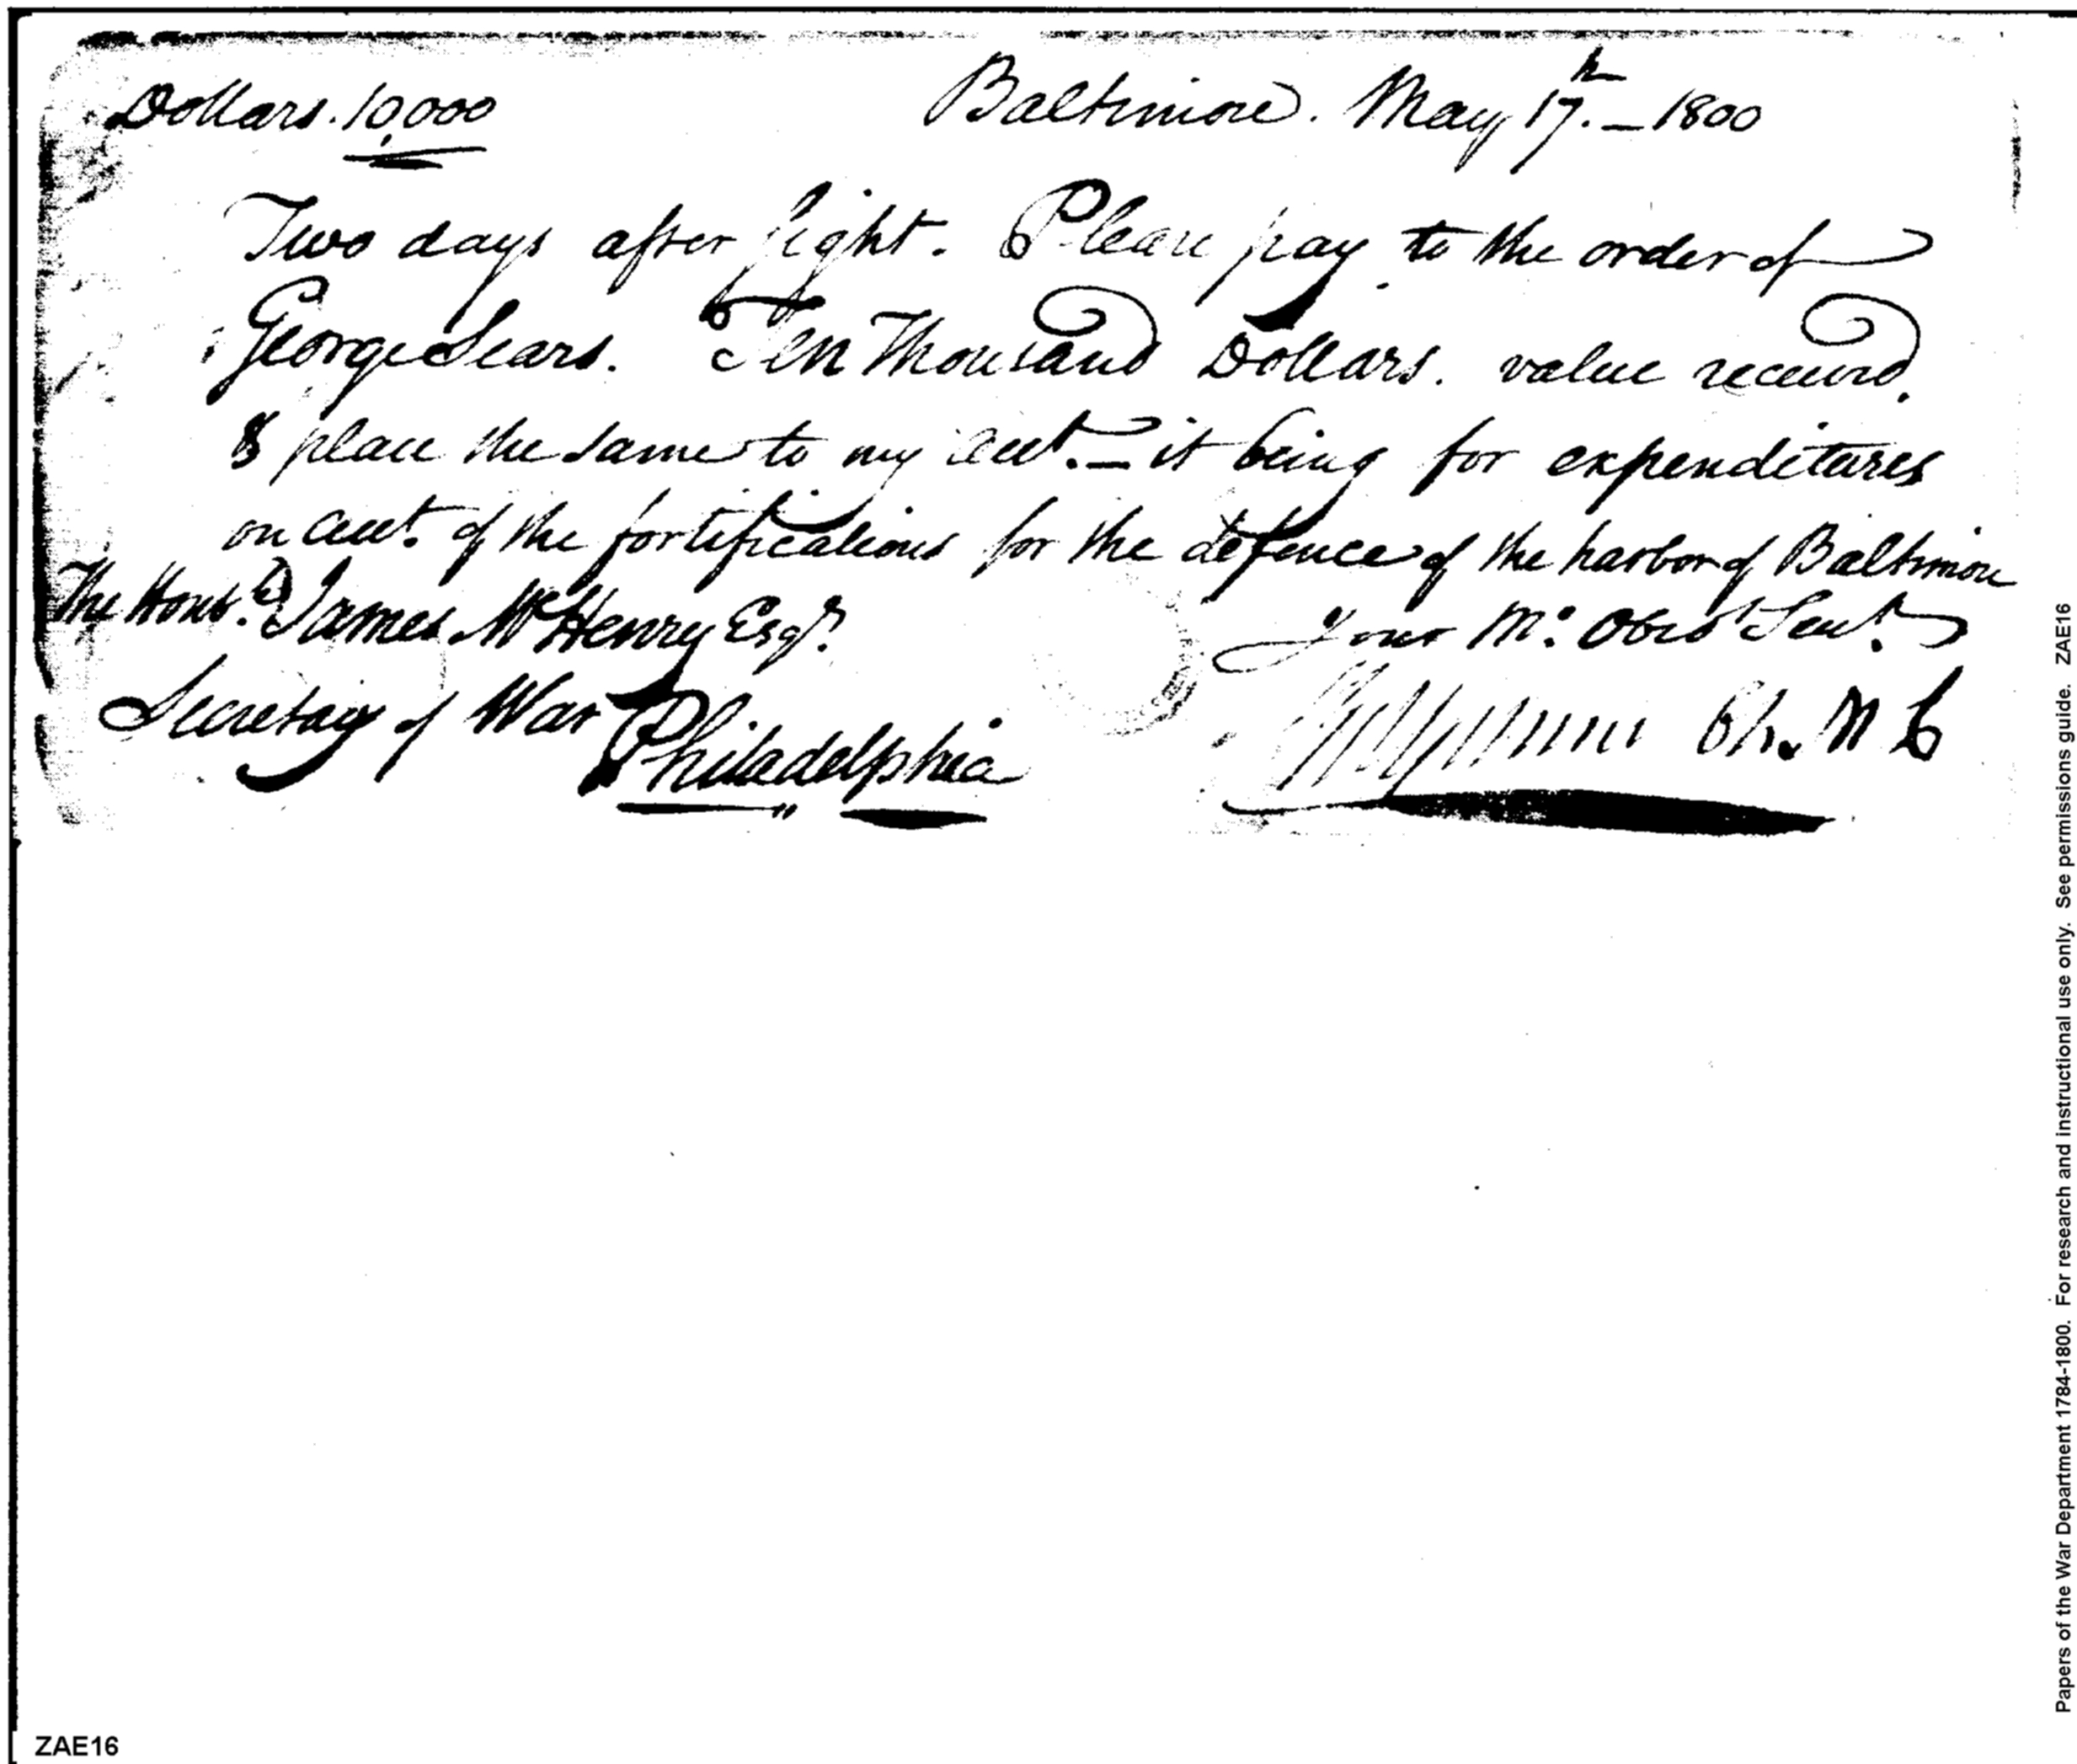 Dollars. 10,000
Baltimore. May 17.th – 1800
Two days after sight. Please pay to the order of
George Sears. Ten Thousand Dollars. value received,
& place the same to my acct. – it being for expenditures
on acct. of the fortifications for the defence of the harbor of Baltimore
The Honb.le James McHenry Esqr.
Your Mo. Obed Servt.
Secretary of War
Philadelphia
Papers of the War Department 1784-1800. For research and instructional use only. See permissions guide. ZAE16
ZAE16